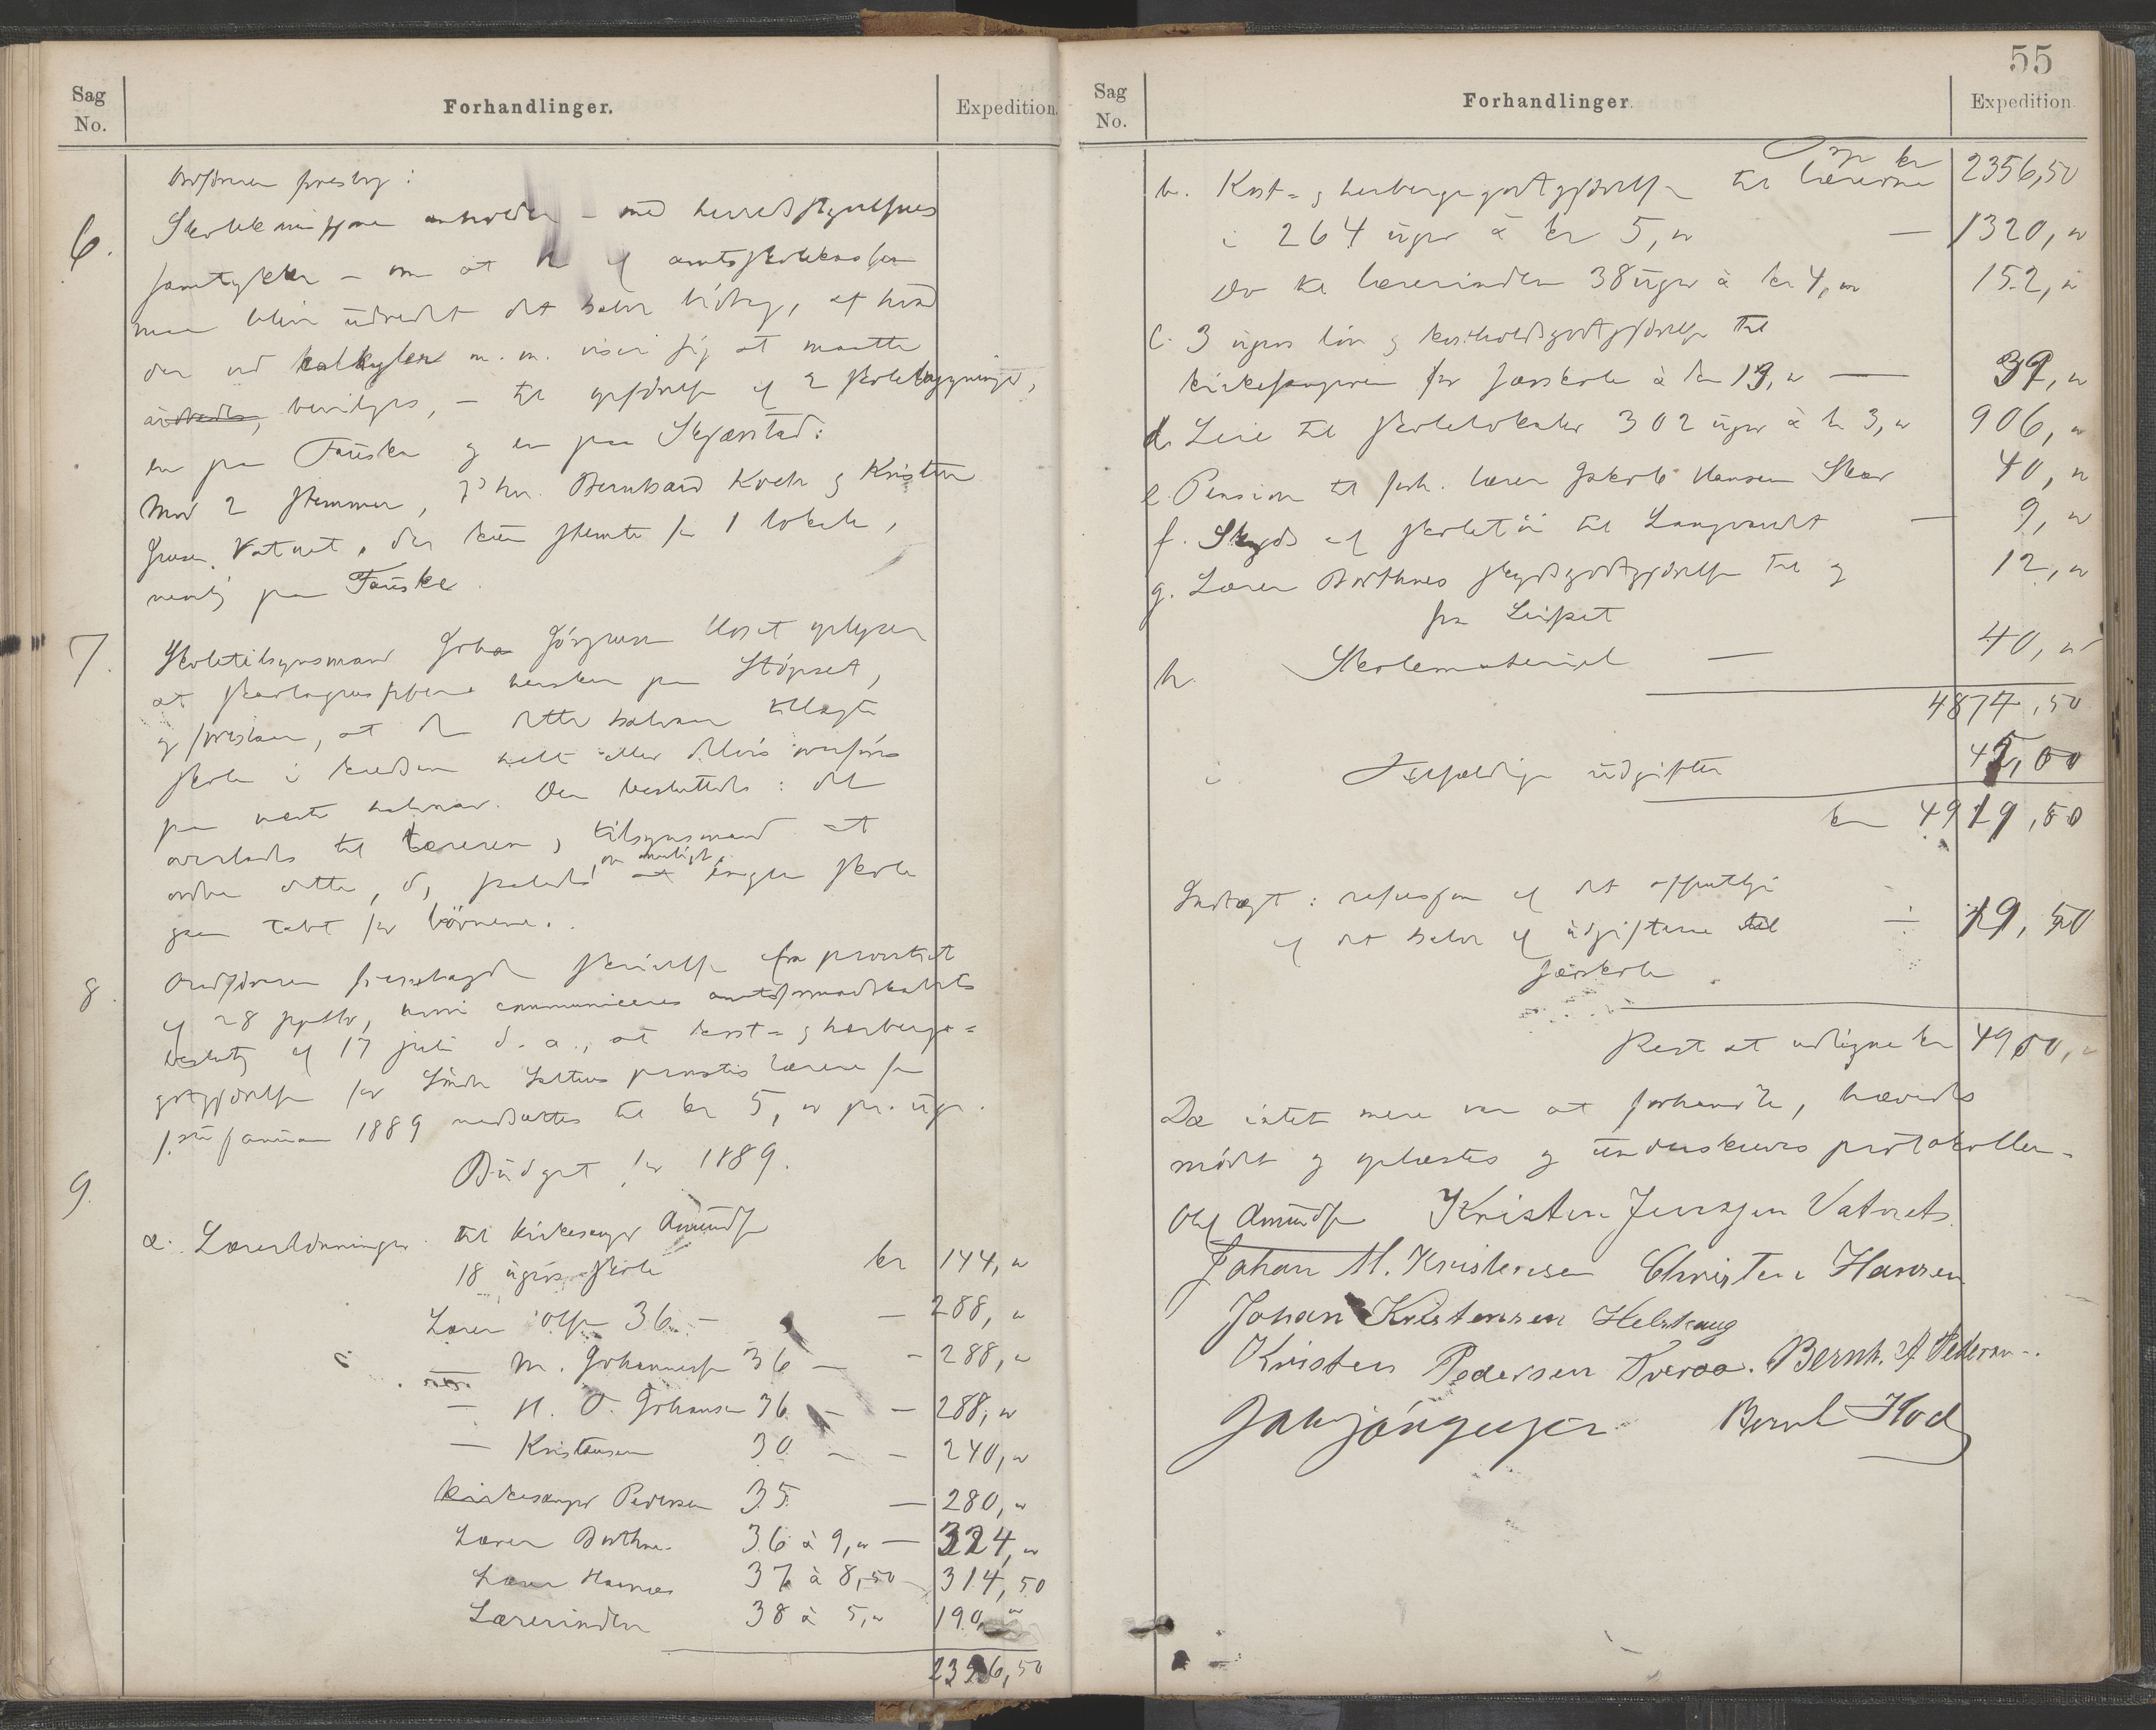 Sag
No.
Forhandlinger.
Expedition.
Ordføreren foreslog:
6.
Skolekommissionen anholder – med herredsstyrelsens
samtykke – om at der af amtsskolekassen
maa blive udredet det halve bidrag, af hvad
der ved kalkyler m. m. viser sig at maatte
bevilges, – til opførelse af 2 skolebygninger,
en paa Fauske og en paa Skjærstad:
Mod 2 stemmer, Bernhard Koch og Kristen
Jensen Vatnet, der kun stemte for 1 lokale,
nemlig paa Fauske.
7.
Skoletilsynsmand Johan Jörgensen oplyser
at hersker paa Stöpset,
og foreslaar, at den dette halvaar tillagte
skole i kredsen helt eller delvis overføres
paa næste halvaar. Den besluttede: det
overlades til læreren og tilsynsmand at
ordne dette, saaledes, om muligt, at ingen skole
gaar tabt for börnene.
8.
Ordføreren fremlagde skrivelse fra provstiet
af 28 septbr, hvori communiceres amtsformandskabets
beslutn. af 17 juli d. a., at kost- og herberge-
godtgjørelse for Söndre Saltens provstis lærere fra
1ste januar 1889 nedsættes til kr 5," pr. uge.
9.
Budget for 1889.
a. Lærerlønninger til kirkesanger Amundsen
18 ugers skole kr 144, "
Lærer Olsen 36 – – 288, "
– M. Johannesen 36 – – 288, "
– H. O. Johansen 36 – – 288, "
– Kristensen 30 – – 240, "
Kirkesanger Pedersen 35 – 280, "
Lærer Dorthne 36 à 9, " – 324, "
Lærer 37 à 8,50 – 314,50
Lærerinden 38 à 5, " 190, "
2356,50
55
Sag
No.
Forhandlinger.
Expedition.
kr 2356,50
b. Kost- og herbergegodtgjørelse til lærerne
i 264 uger à kr 5, " – 1320, "
Do til lærerinden 38 uger à kr 4, " 152, "
c. 3 ugers løn og kostholdsgodtgjørelse til
kirkesangeren for à kr 13, " – 39, "
d. Leie til skolelokaler 302 uger à kr 3, " 906, "
e. Pension til forh. lærer Jakob Hansen 40, "
f. Skyds af skoletöi til Langvandet – 9, "
g. Lærer Dorthnes skydsgodtgjørelse til og 12, "
fra Leifset
h. Skolemateriel – 40, "
4874,50
i Tilfældige udgifter 45,00
kr 4919,50
Indtægt: refusion af det offentlige
af det halve af udgifterne til ÷ 19,50
Rest at udligne kr 4900, "
Da intet mere var at forhandle, hævedes
mødet og oplæstes og underskreves protokollen.
Ole Amundsen Kristen Jensen Vatnets
Johan M. Kristensen Christen Hansen
Johan Kristensen Helskaug
Kristen Pedersen Tveraa. Bernh. A Pedersen.
Joh Jörgensen Bernh Koch